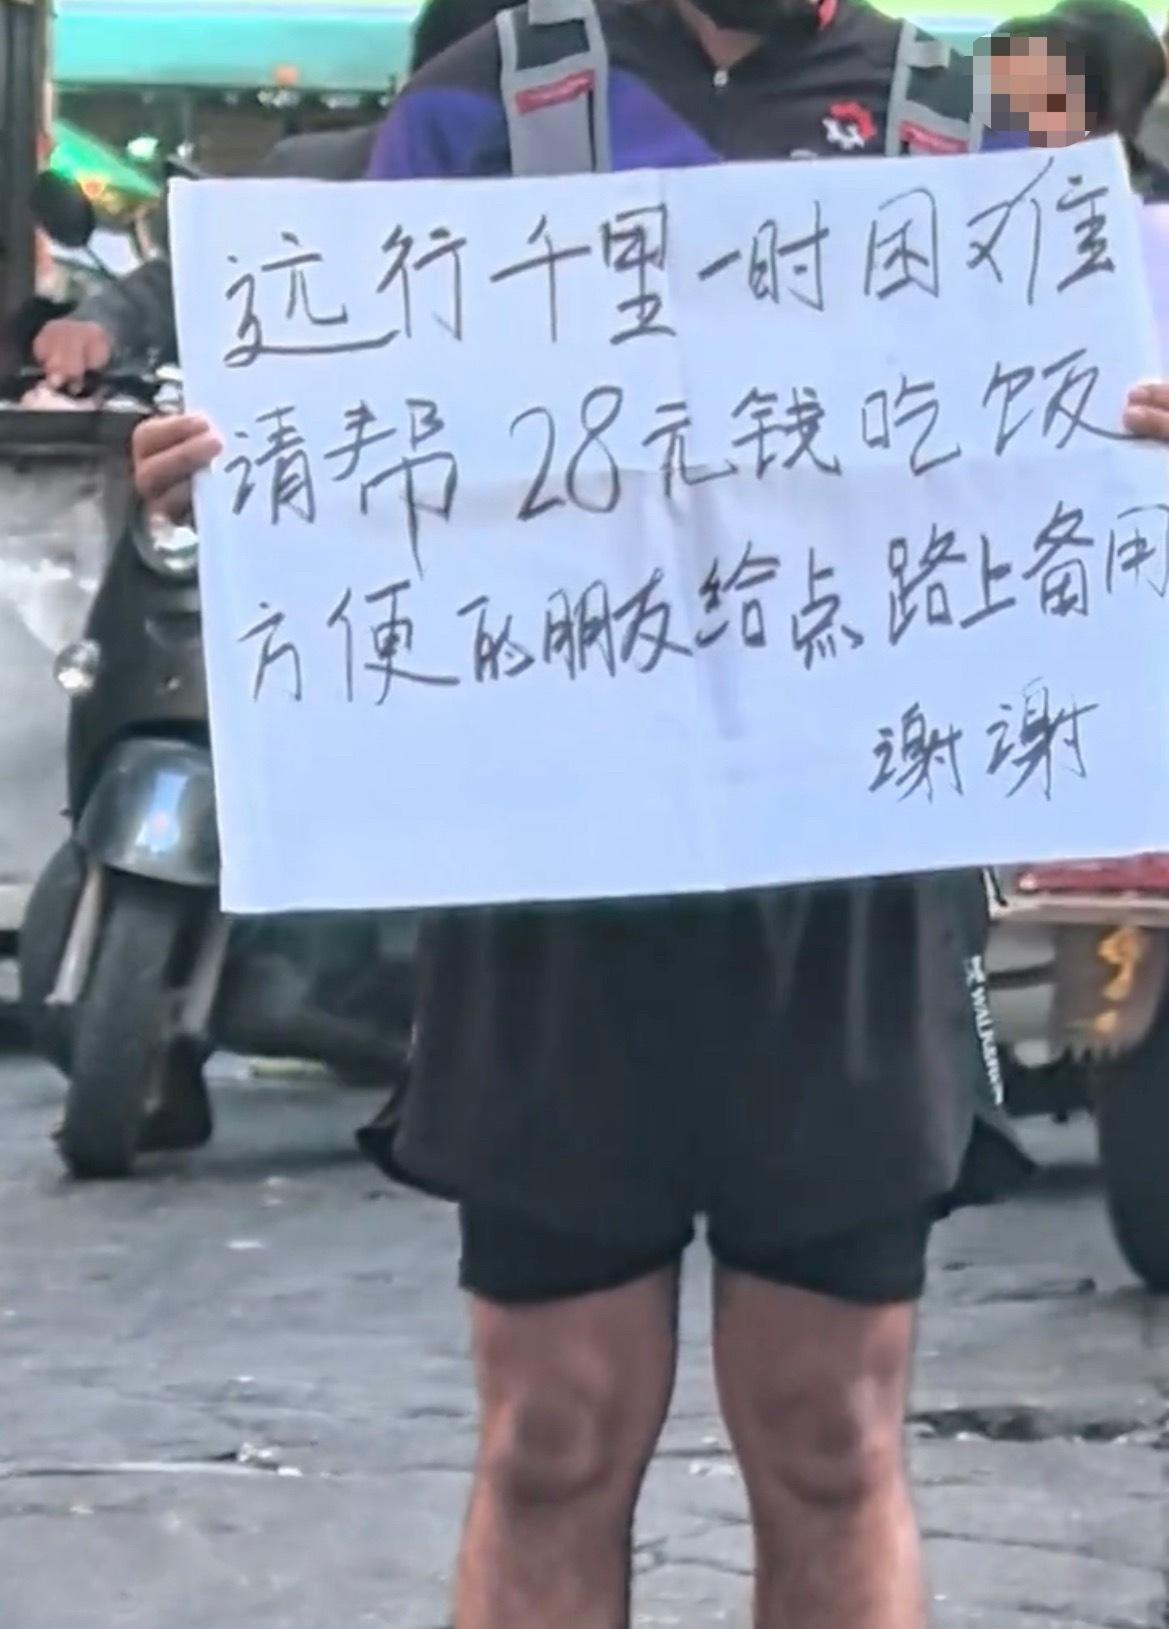 远行千里一时困难
请帮28元钱吃饭
方便的朋友给点路上备用
谢谢